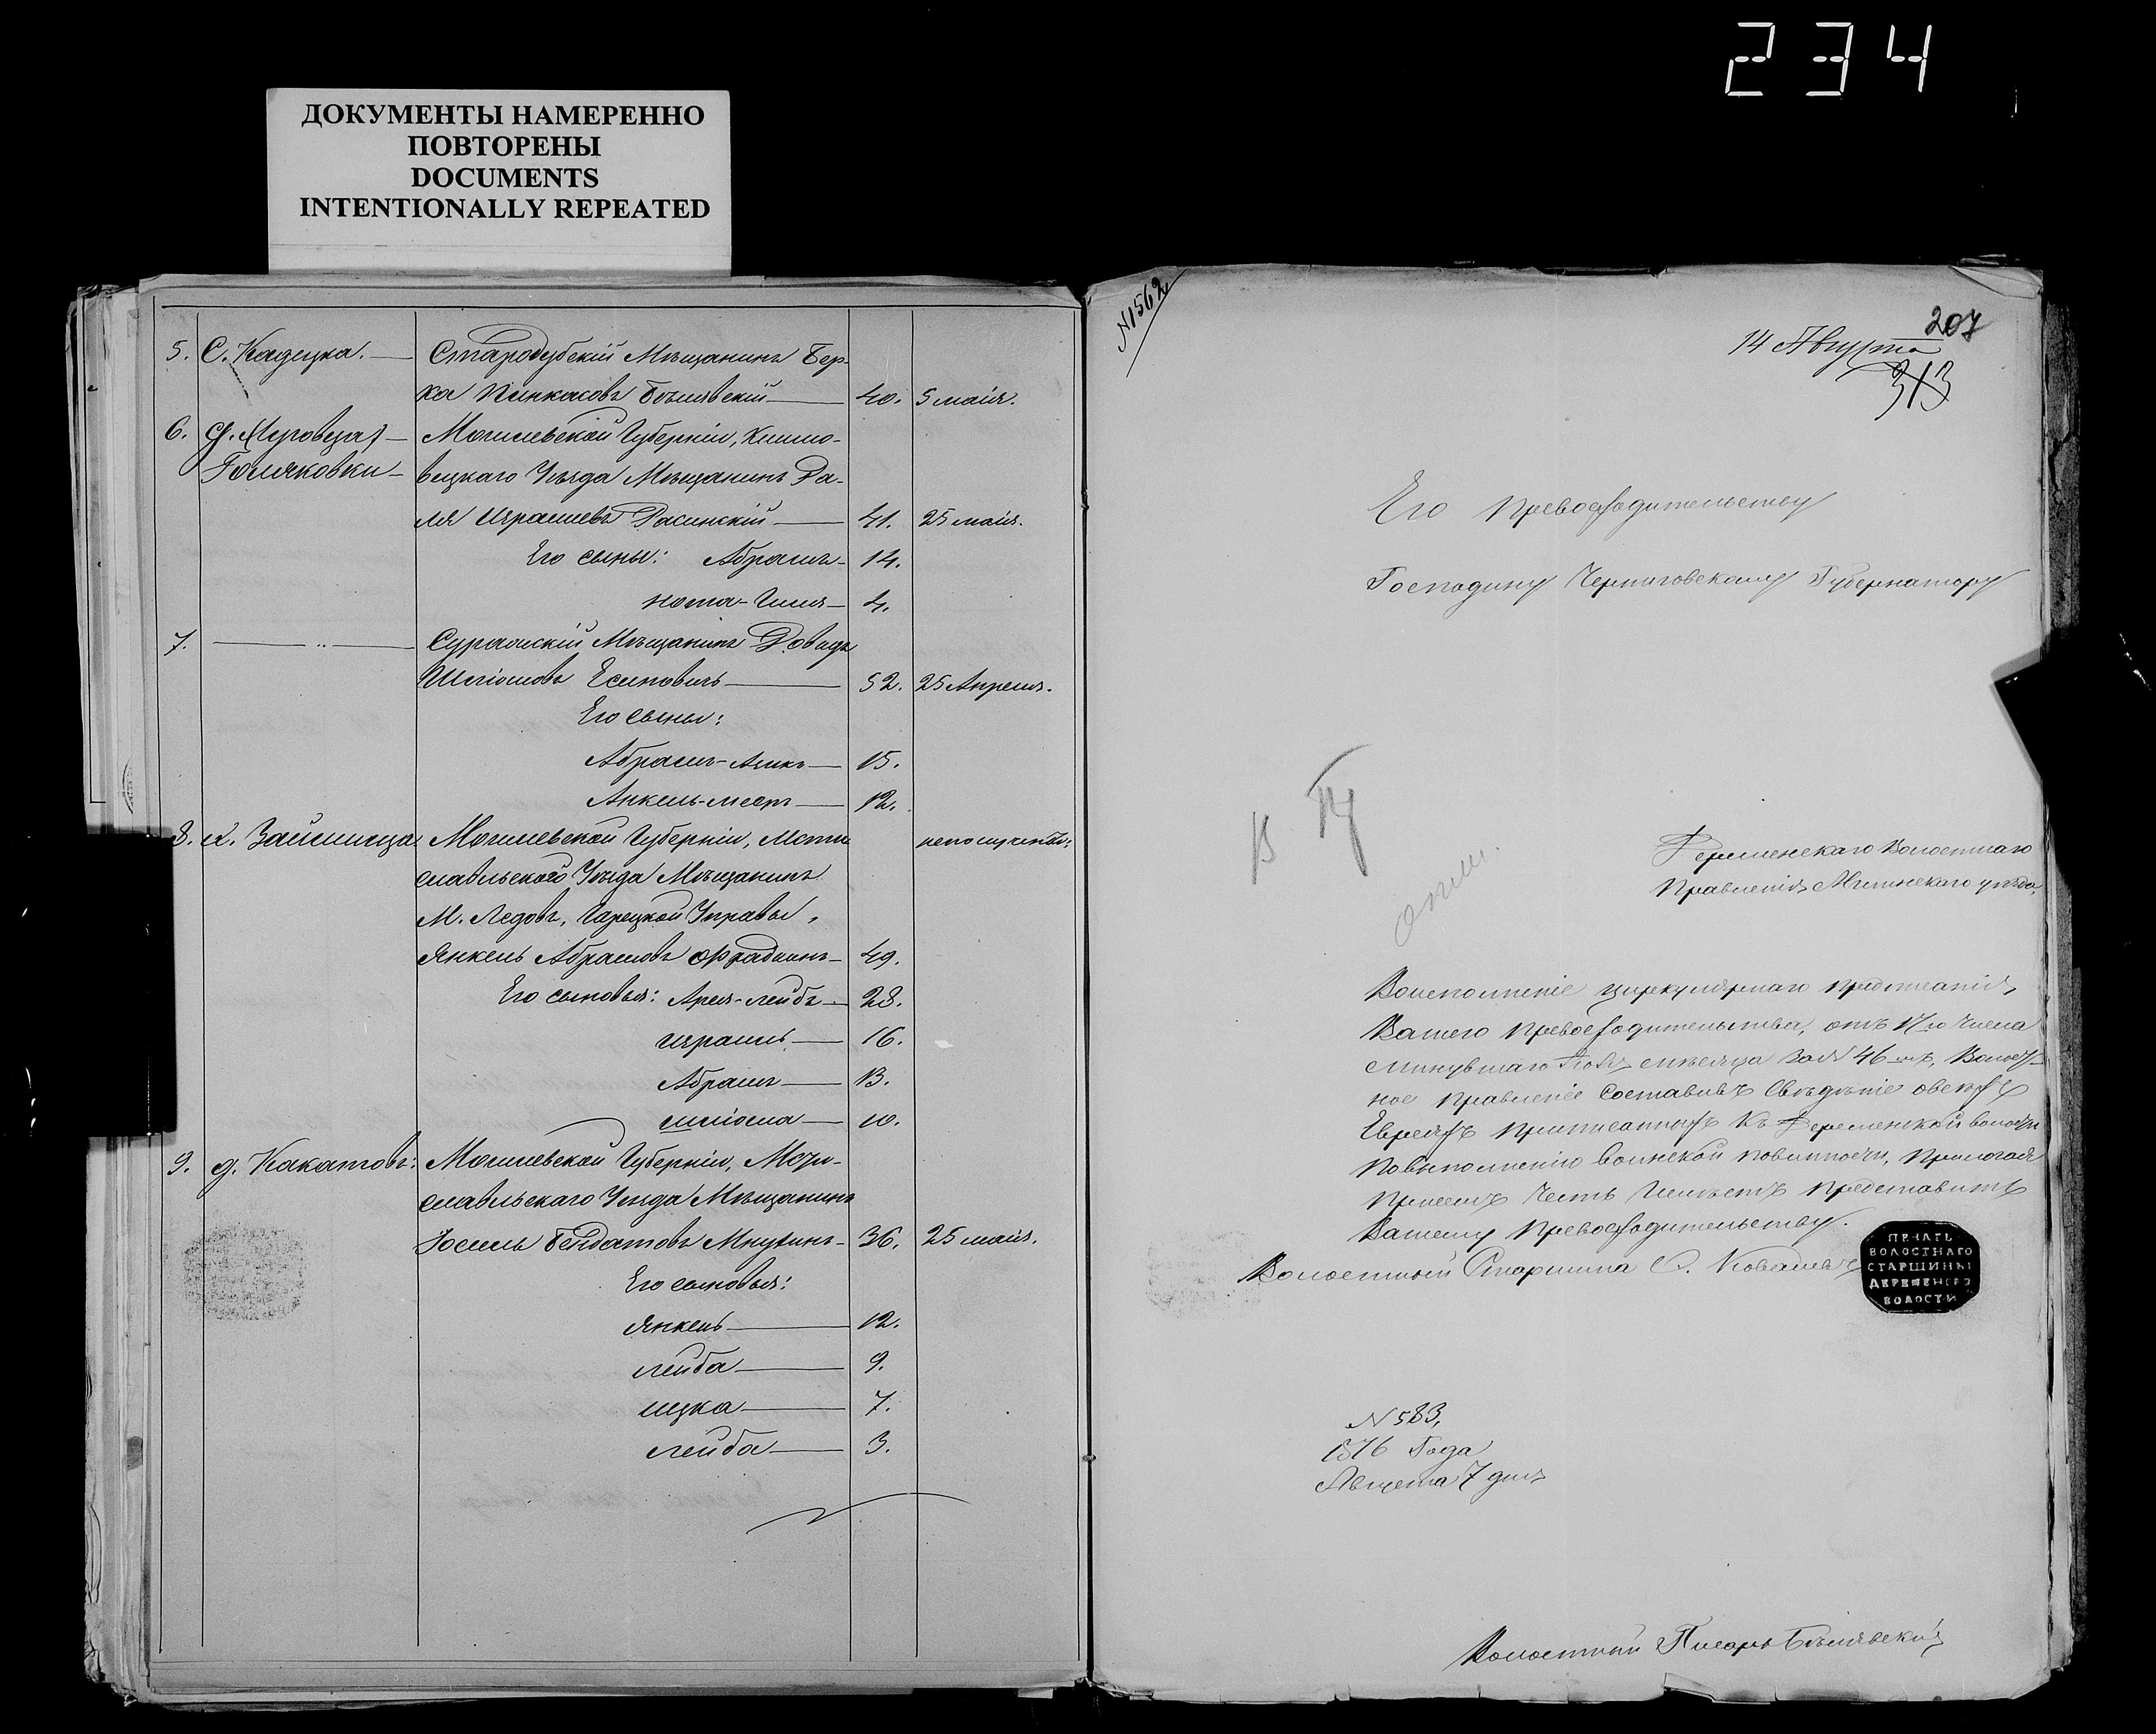 234
ДОКУМЕНТЫ НАМЕРЕННО
ПОВТОРЕНЫ
DOCUMENTS
INTENTIONALLY REPEATED
5. С. Кадецка. Стародубскій Мѣщанинъ Бер-
ка Пинкасовъ Бѣлявскій 40. 5 маія.
6. Могилевской Губерніи, Климо-
Голяковки вецкаго Уѣзда Мѣщанинъ Ра-
ля Израилевъ 41. 25 маія.
Его сыны: Абрамъ 14.
Нота- 4.
7. " Суражскій Мѣщанинъ Довидъ
Шліомовъ 52. 25 Апреля.
Его сыны:
Абрамъ-Айзикъ 15.
Анкель- 12.
8. Могилевской Губерніи, Мсти-
славльского Уѣзда Мѣщанинъ
М. Лядовъ, Управы,
Янкель Абрамовъ Фрадкинъ 49.
Его сыновья: Арея-Лейба 28.
Израиль 16.
Абрамъ 13.
Шліома 10.
9. д. Какатовъ: Могилевской Губерніи, Мсти-
славльскаго Уѣзда Мѣщанинъ
Іосель Мнухинъ 36. 25 маія.
Его сыновья:
Янкель 12.
Лейба 9.
Ицка 7.
Лейба 3.
N 1562
207
14 Августа
313
Его Превосходительству
Господину Черниговскому Губернатору
Деременскаго Волостнаго
Правленія Мглинскаго уѣзда,
Воисполненіе циркулярнаго предписанія,
Вашего Превосходительства, отъ 17го числа
минувшаго Іюля мѣсяца за № 46-мъ, Волост-
ное правленіе составивъ Свѣдѣніе овсехъ
Евреяхъ приписанныхъ къ Деременской волости
повыполненію воинской повинности, прилогая
присемъ честь имѣетъ представить
Вашему Превосходительству.
Волостный Старшина С. Ковалевъ
ПЕЧАТЬ
ВОЛОСТНАГО
СТАРШИНЫ
ДЕРЕМЕНСКО
ВОЛОСТИ
N 583,
1876 Года
Августа 7 дня
Волостный Писарь Бѣлявскій